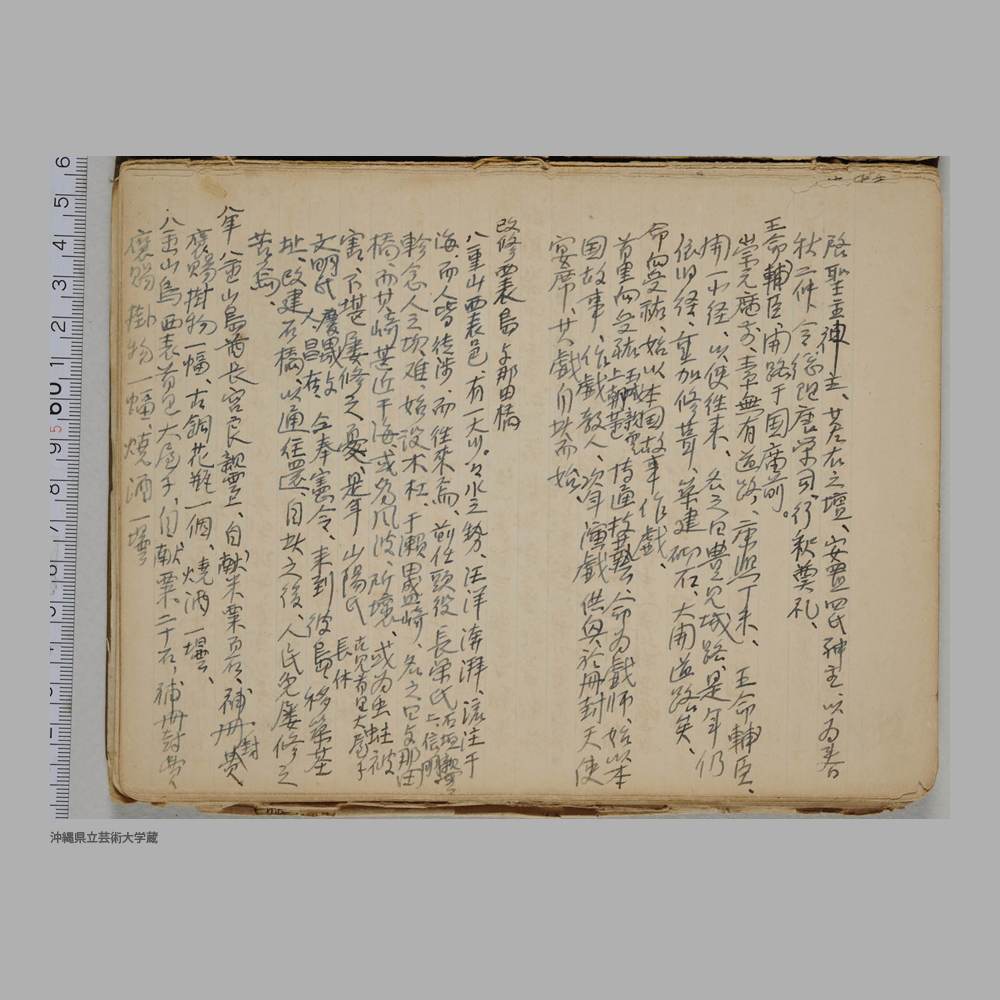 啓聖王神主、於左右之壇、安置四氏神主、以為春
秋二仲、令行釈奠礼、
王命輔臣、開路于国廣前。
崇元廟前、素無有道路、康熙丁未、王命輔臣、
開一小径、以便往来、名之曰豊見城路、是年仍
依旧径、重加修葺、築建砌石、大開道路矣、
命向受祐、始以本国故事作戯、
首里向受祐 玉城親雲上朝薫 博通技芸、命為戯師、始以本
国故事、作戯教人、次年演戯供興於冊封天使
宴席、其戯自此而始、
改修西表島与那田橋
八重山西表邑、有一大川。々水之勢、汪洋澎湃、滾注于
海、而人皆徒渉、而往來焉、前任頭役 長栄氏 石垣親雲上信明
軫念人之坂難、始設木杠、于瀬田盛崎、名之曰与那田
橋、而其崎甚近于海、或為風波所壊、或為虫蛀被
害、不堪屡修之憂、是年 山陽氏 宮良首里大屋子長休
文明氏 慶田城 人昌 奉憲令、来到彼島、移築基
址、改建石橋、以通往還、自此之後、人民免屡修之
苦焉、
八年、八重山島酋長宮良親雲上、自献米粟百石、補冊封費、
褒賜掛物一幅、古銅花瓶一個、焼酒一壜、
八重山島西表首里大屋子、自献粟二十石、補冊封費、
褒賜掛物一幅、焼酒一壜
6 5 4 3 2 1 60 9 8 7 6 5 4 3 2 1 50
沖縄県立芸術大学蔵